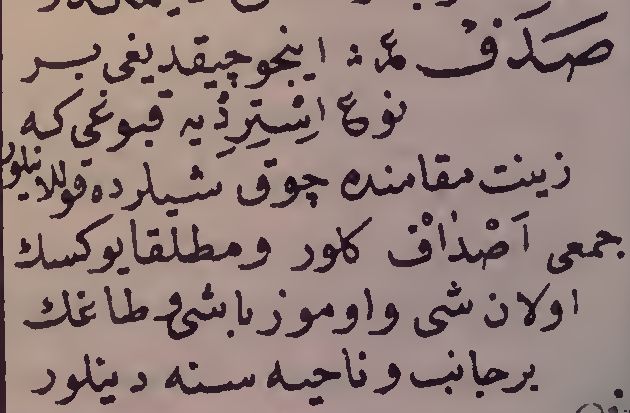 صَدَفْ ع: اينجو چيقديغى بر
نوع اِسْتِرِدْيه قبوغى كه
زينت مقامنده چوق شيلرده قوللانيلور
جمعى اَصْدَافْ كلور و مطلقا يوكسك
اولان شى و اوموز باشى و طاغك
بر جانب و ناحيه سنه دينلور